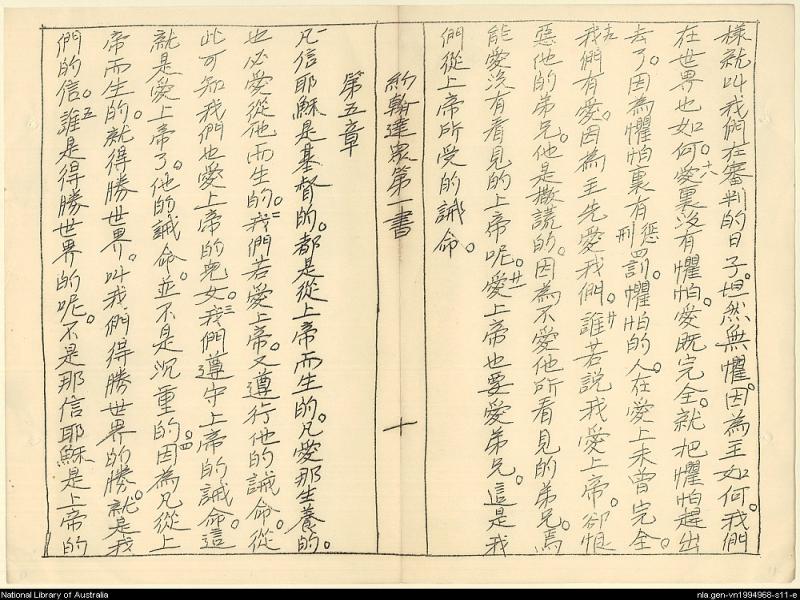 樣就叫我們在審判的日子。坦然無懼。因為主如何。我們
在世界也如何。十八愛裏沒有懼怕。愛既完全。就把懼怕趕出
去了。因為懼怕裏有懲罰刑罰。懼怕的人。在愛上未曾完全。
十九我們有愛。因為主先愛我們。廿誰若說我愛上帝。卻恨
惡他的弟兄。他是撒謊的。因為不愛他所看見的弟兄。焉
能愛沒有看見的上帝呢。廿一愛上帝也要愛弟兄。這是我
們從上帝所受的誡命。
約翰達眾第一書
十
第五章
一凡信耶穌是基督的。都是從上帝而生的。凡愛那生養的。
也必愛從他而生的。二我們若愛上帝。又遵行他的誡命。從
此可知我們也愛上帝的兒女。三我們遵守上帝的誡命。這
就是愛上帝了。他的誡命。並不是沉重的。四因為凡從上
帝而生的。就得勝世界。叫我們得勝世界的勝。就是我
們的信。五誰是得勝世界的呢。不是那信耶穌是上帝的
National Library of Australia
nla.gen-vn1994968-s11-e